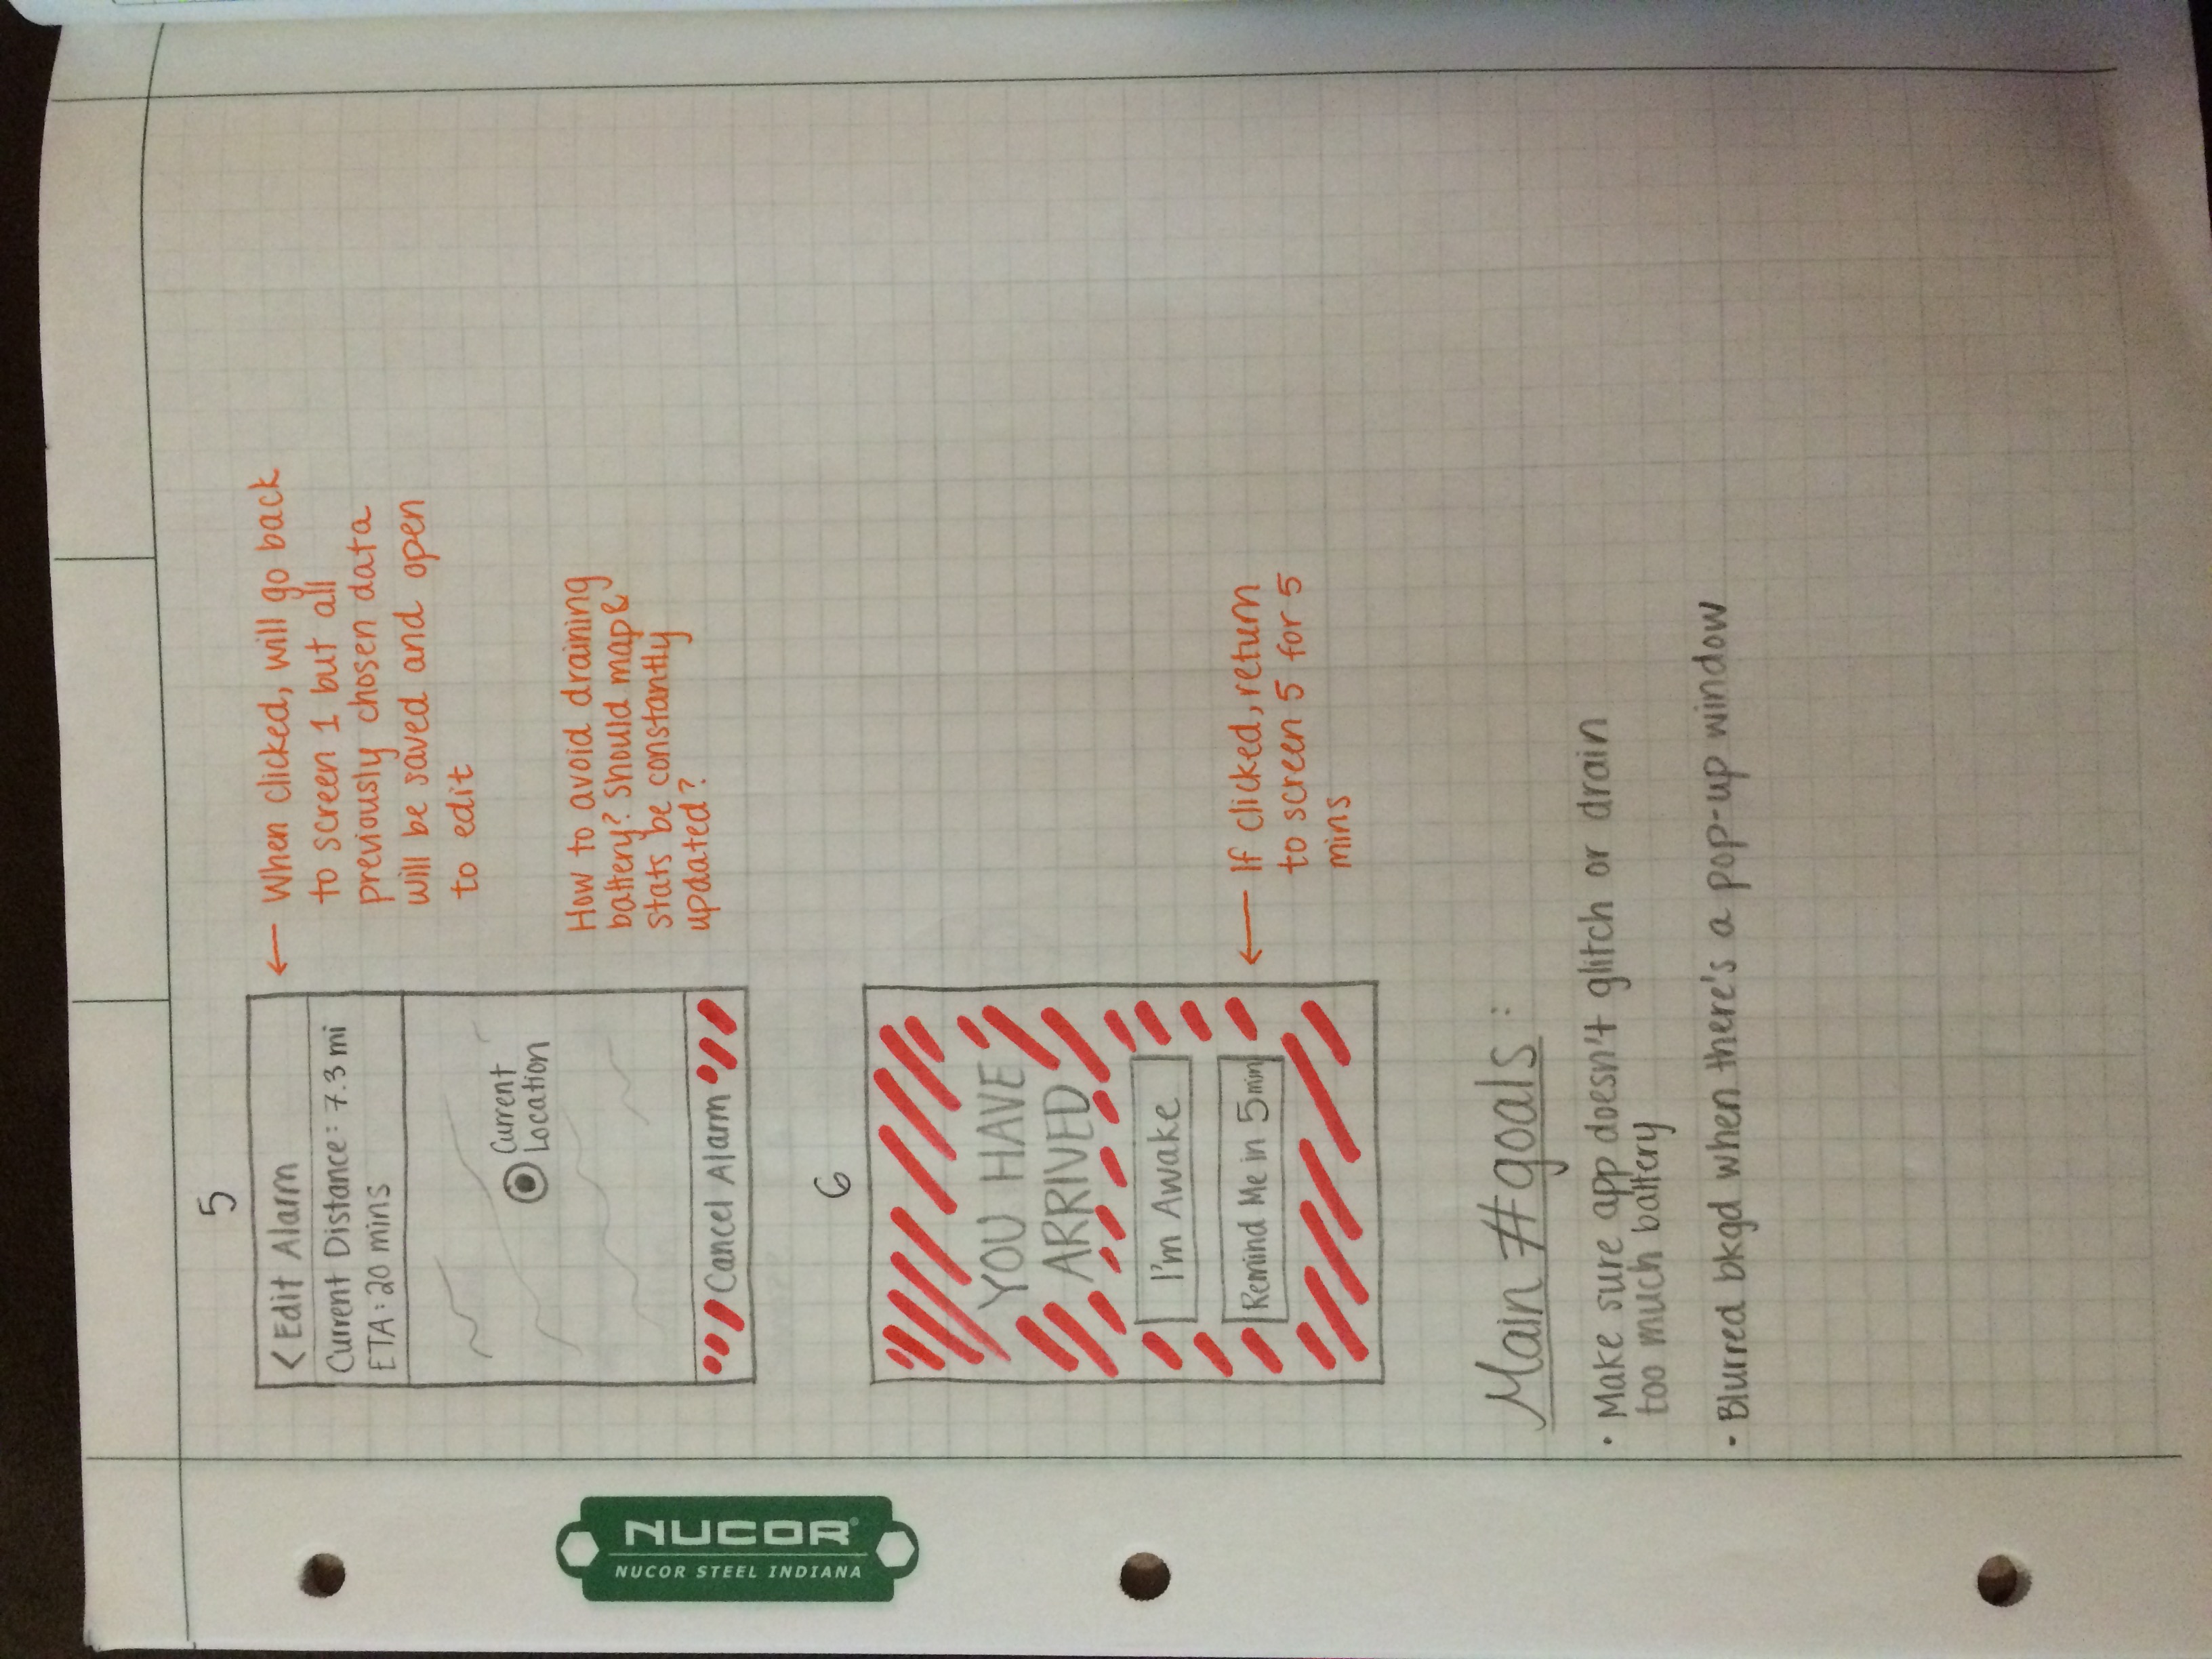 5
< Edit Alarm
Current Distance: 7.3 mi
ETA: 20 mins
Current
Location
Cancel Alarm
← When clicked, will go back
to screen 1 but all
previously chosen data
will be saved and open
to edit
How to avoid draining
battery? Should map &
stats be constantly
updated?
NUCOR®
NUCOR STEEL INDIANA
6
YOU HAVE
ARRIVED
I'm Awake
Remind Me in 5 min
← If clicked, return
to screen 5 for 5
mins
Main #goals:
• Make sure app doesn't glitch or drain
too much battery
- Blurred bkgd when there's a pop-up window